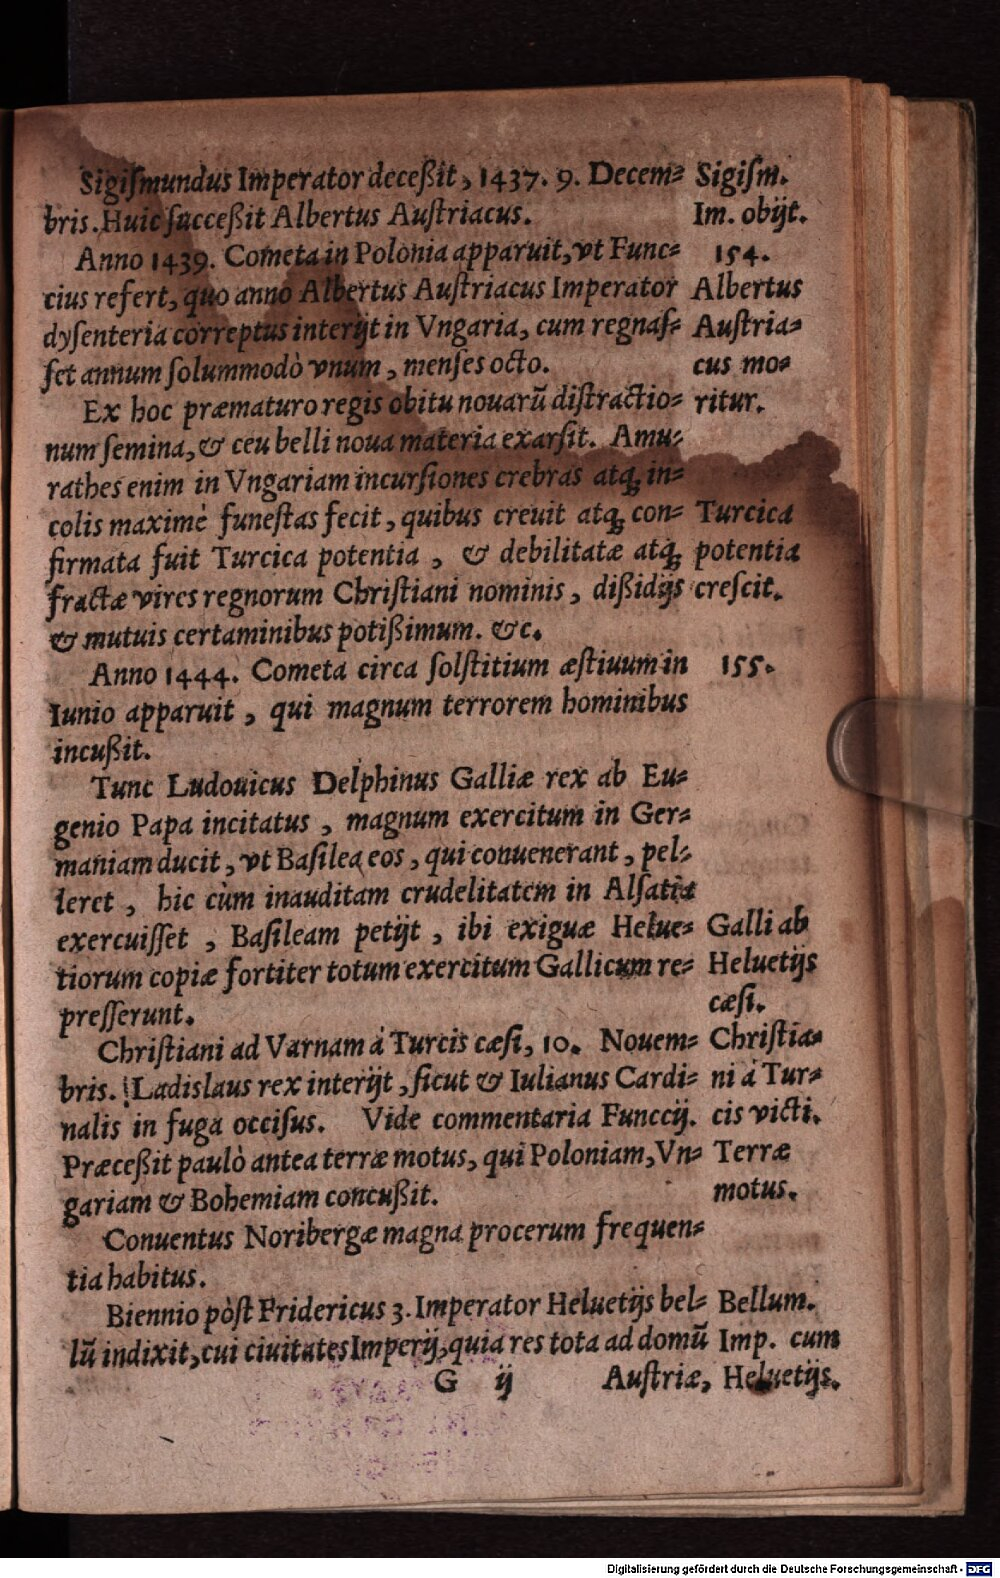 Sigiſmundus Imperator deceßit, 1437. 9. Decem⸗
bris. Huic ſucceßit Albertus Auſtriacus.
Anno 1439. Cometa in Polonia apparuit, vt Func⸗
cius refert, quo anno Albertus Auſtriacus Imperator
dyſenteria correptus interijt in Vngaria, cum regnaſ⸗
ſet annum ſolummodò vnum, menſes octo.
Ex hoc præmaturo regis obitu nouarũ diſtractio⸗
num ſemina, & ceu belli noua materia exarſit. Amu⸗
rathes enim in Vngariam incurſiones crebras atq; in⸗
colis maximè funeſtas fecit, quibus creuit atq; con⸗
firmata fuit Turcica potentia, & debilitatæ atq;
fractæ vires regnorum Chriſtiani nominis, dißidijs
& mutuis certaminibus potißimum. &c.
Anno 1444. Cometa circa ſolſtitium æſtiuum in
Iunio apparuit, qui magnum terrorem hominibus
incußit.
Tunc Ludouicus Delphinus Galliæ rex ab Eu⸗
genio Papa incitatus, magnum exercitum in Ger⸗
maniam ducit, vt Baſilea eos, qui conuenerant, pel⸗
leret, hic cùm inauditam crudelitatem in Alſatia
exercuiſſet, Baſileam petijt, ibi exiguæ Helue⸗
tiorum copiæ fortiter totum exercitum Gallicum re⸗
preſſerunt.
Chriſtiani ad Varnam à Turcis cæſi, 10. Nouem⸗
bris. Ladislaus rex interijt, ſicut & Iulianus Cardi⸗
nalis in fuga occiſus. Vide commentaria Funccij.
Præceßit paulò antea terræ motus, qui Poloniam, Vn⸗
gariam & Bohemiam concußit.
Conuentus Noribergæ magna procerum frequen⸗
tia habitus.
Biennio pòſt Fridericus 3. Imperator Heluetijs bel⸗
lũ indixit, cui ciuitates Imperij, quia res tota ad domũ
G ij Auſtriæ,
Sigiſm.
Im. obijt.
154.
Albertus
Auſtria⸗
cus mo⸗
ritur.
Turcica
potentia
creſcit.
155.
Galli ab
Heluetijs
cæſi.
Chriſtia⸗
ni à Tur⸗
cis victi.
Terræ
motus.
Bellum.
Imp. cum
Heluetijs.
Digitalisierung gefördert durch die Deutsche Forschungsgemeinschaft - DFG